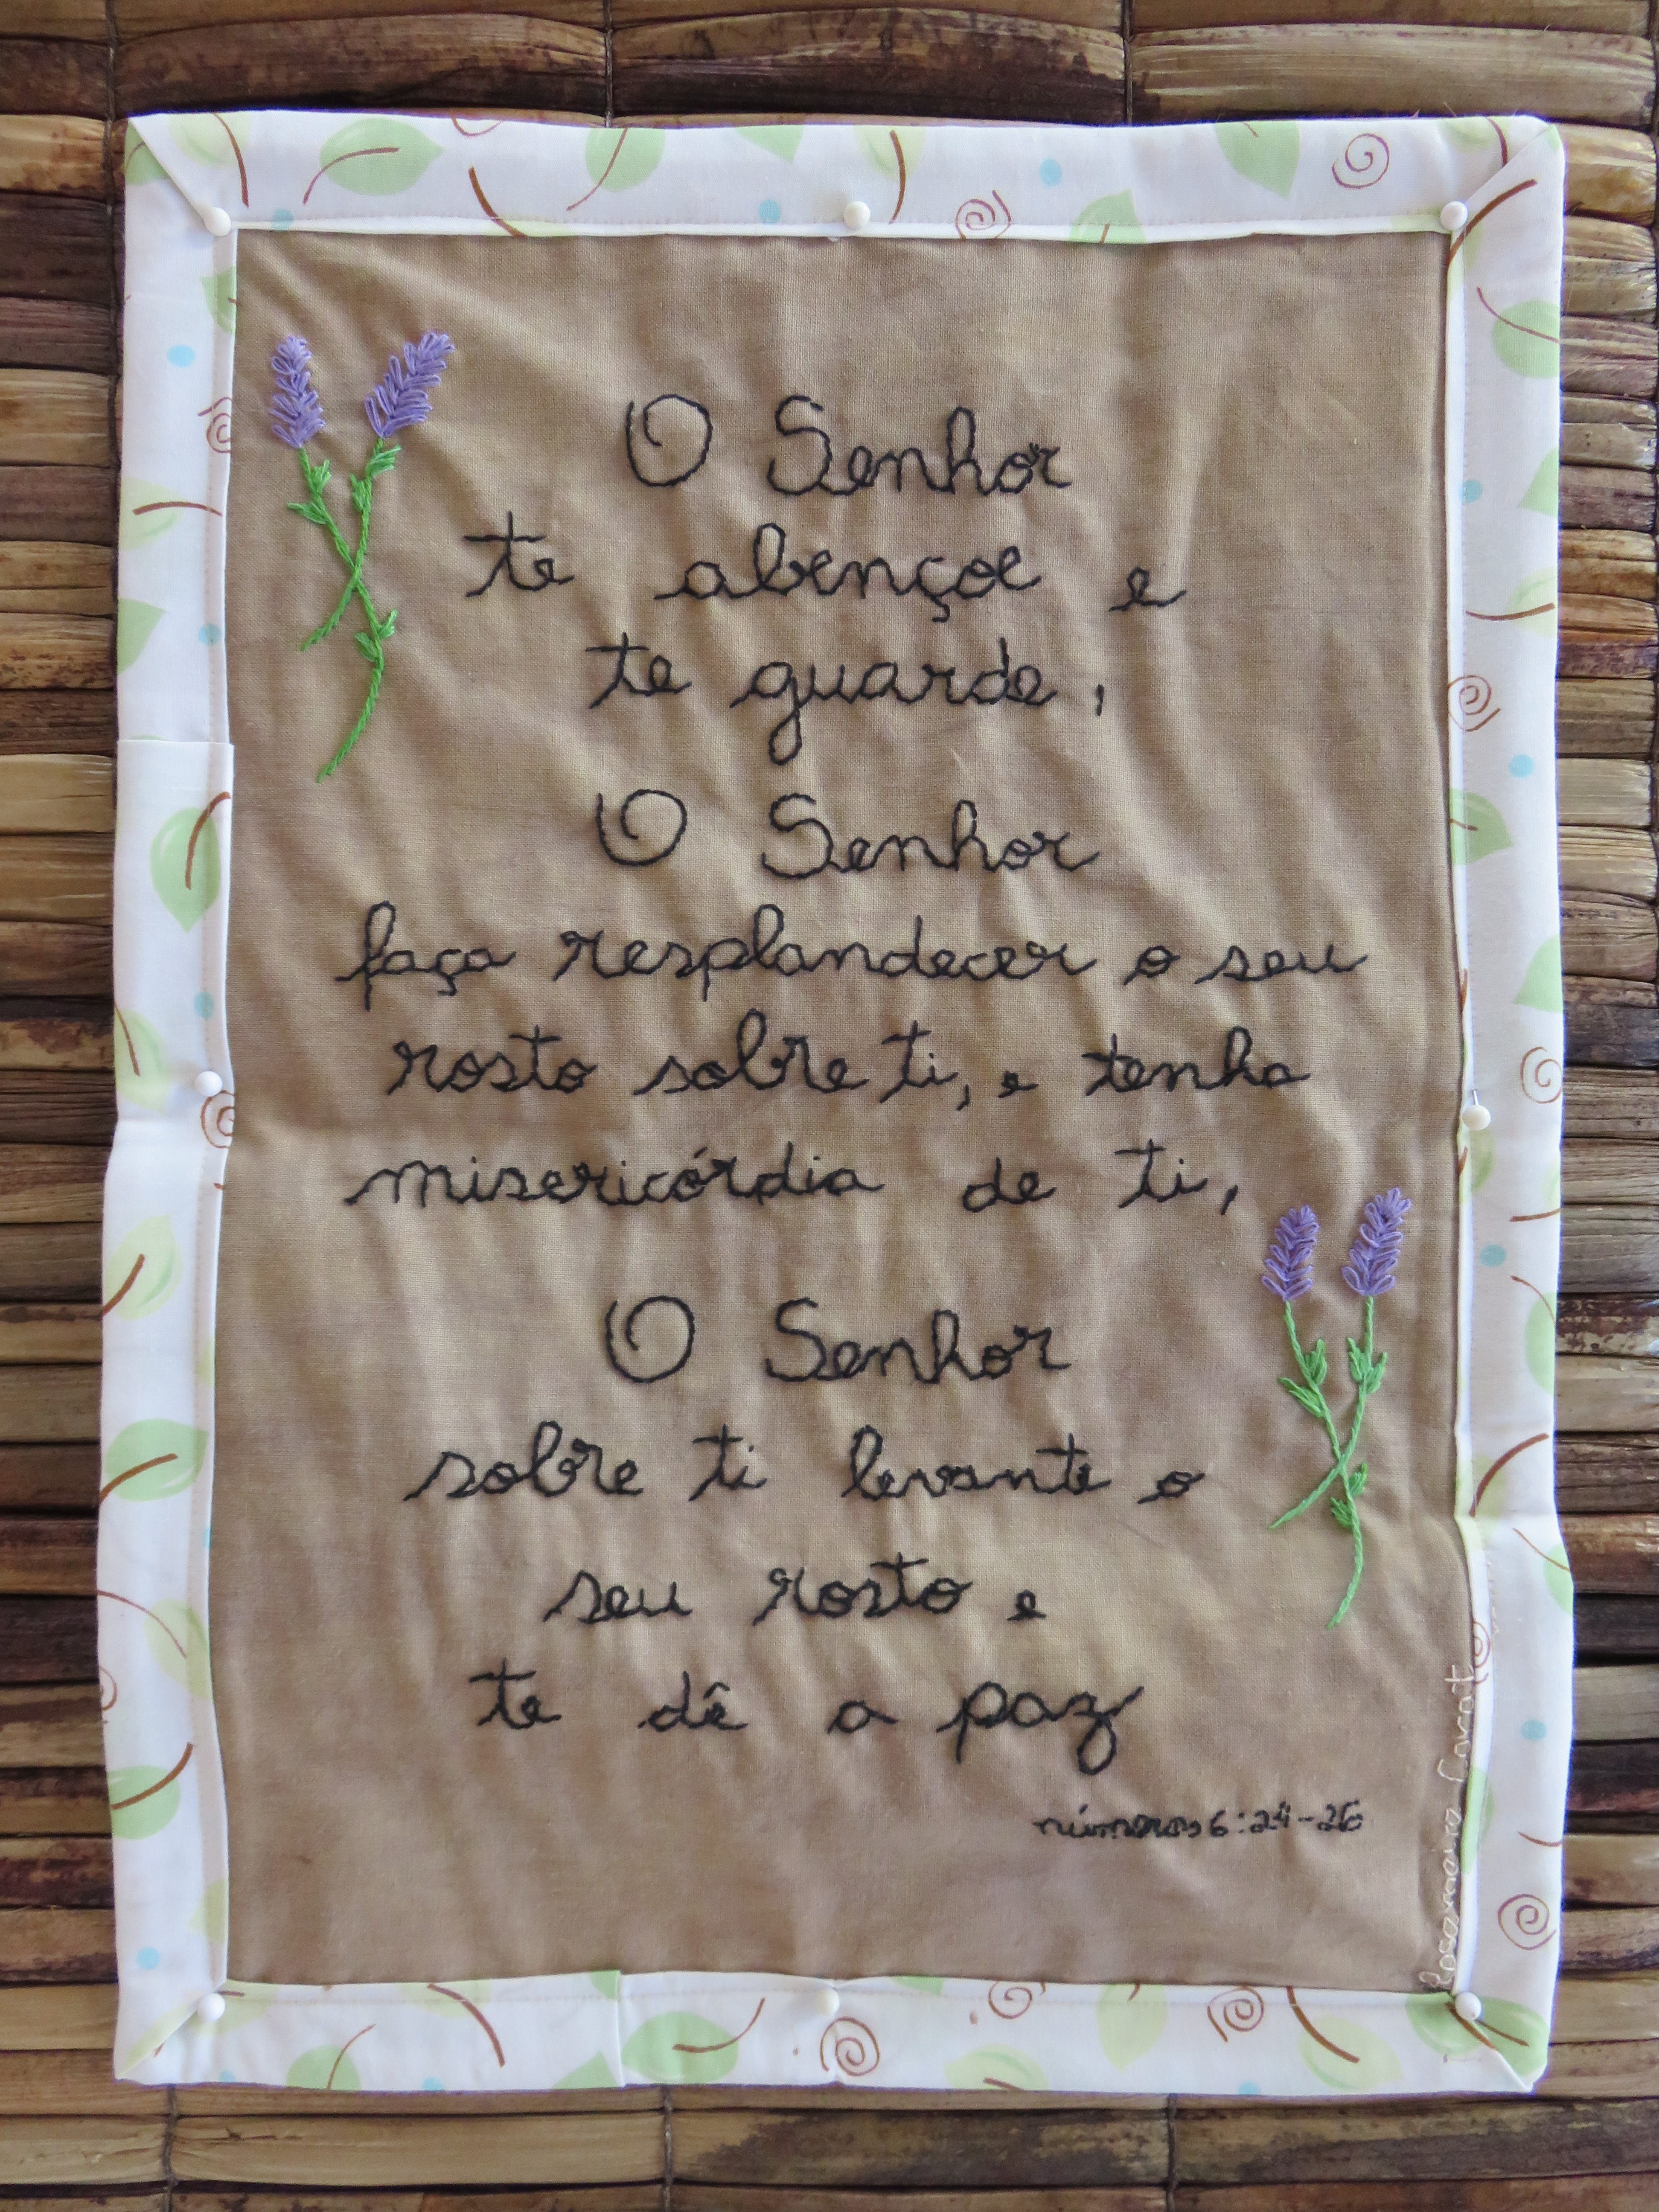 O Senhor
te abençoe e
te guarde,
O Senhor
faça resplandecer o seu
rosto sobre ti, e tenha
misericórdia de ti,
O Senhor
sobre ti levante o
seu rosto e
te dê a paz
números 6:24-26
Rosemeire